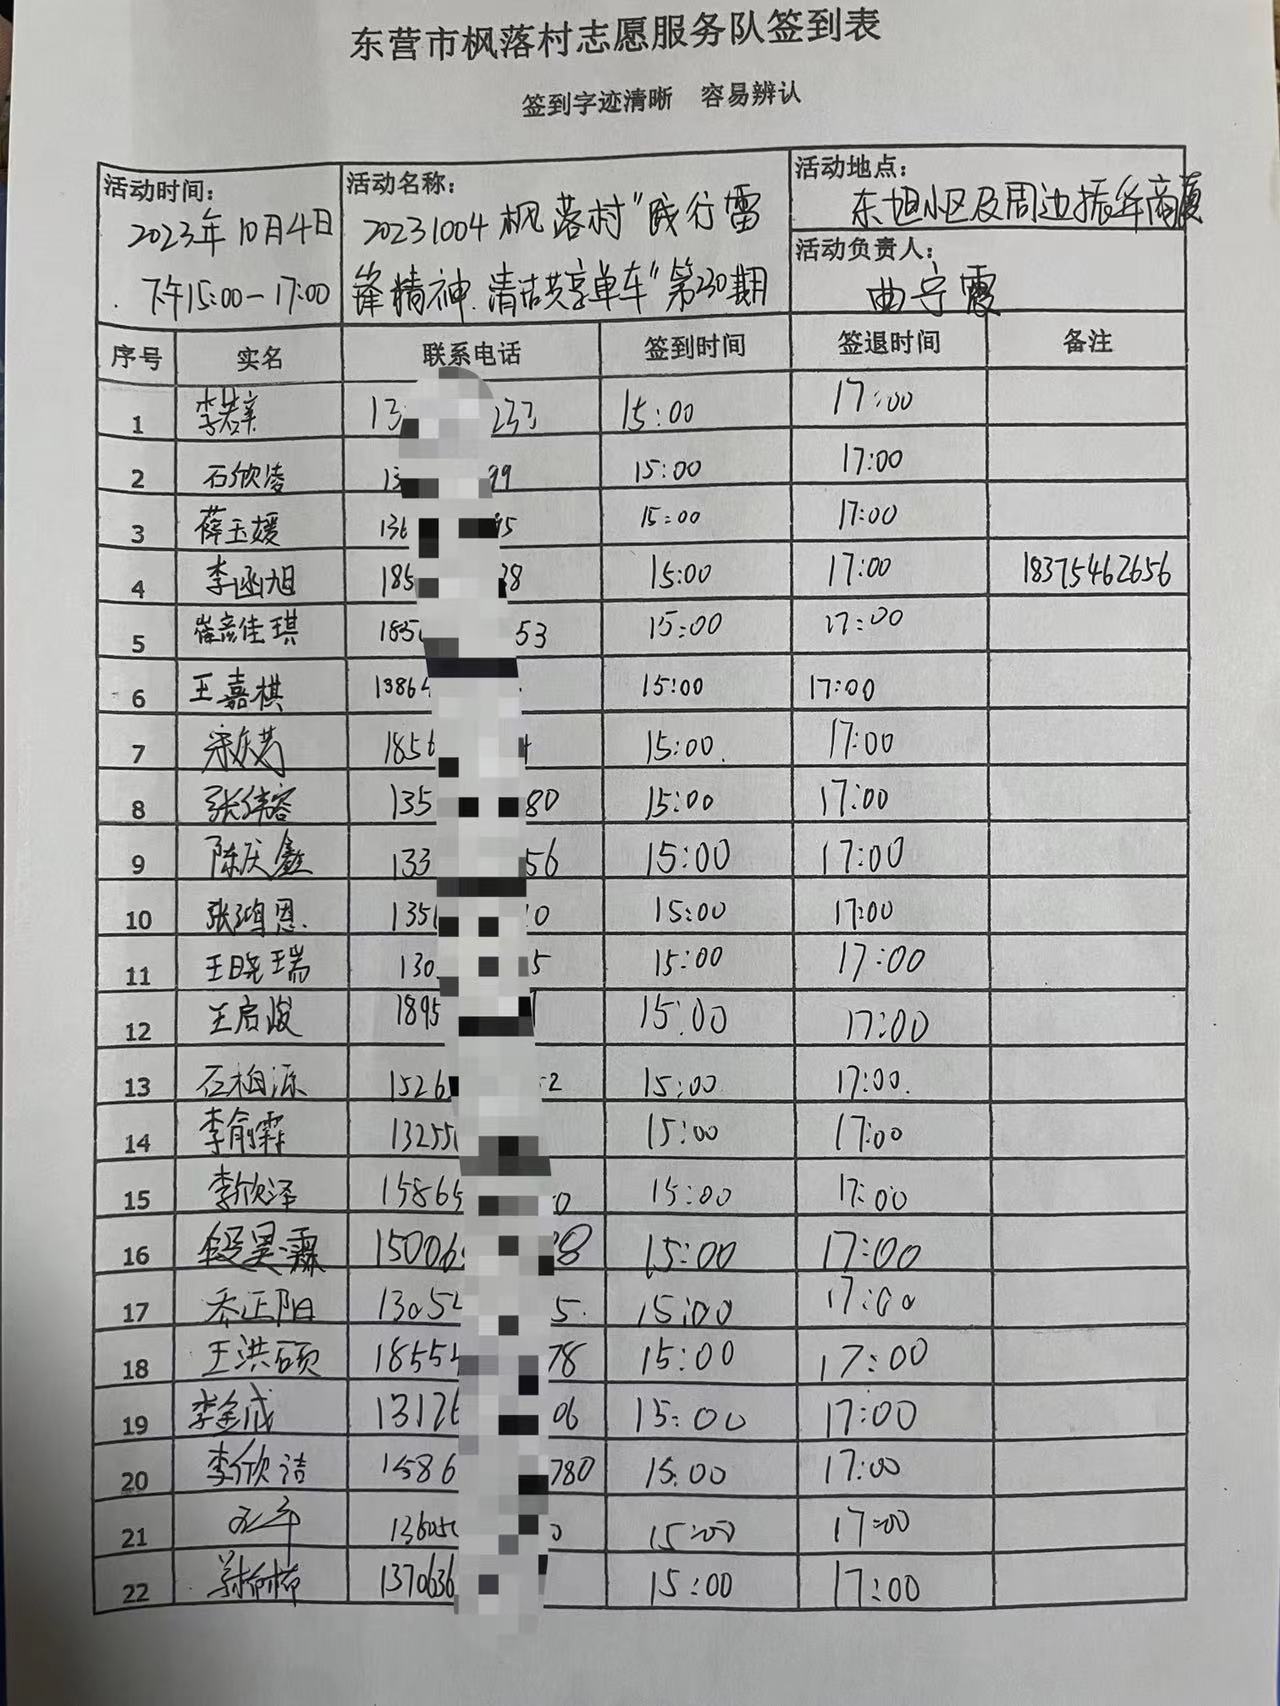 东营市枫落村志愿服务队签到表
签到字迹清晰 容易辨认
活动时间：
2023年10月4日
下午15:00-17:00
活动名称：
20231004枫落村"践行雷
锋精神.清洁共享单车"第230期
活动地点：
东旭小区及周边振华商厦
活动负责人：
曲宁霞
序号 实名 联系电话 签到时间 签退时间 备注
1 李若菲 13 233 15:00 17:00
2 石欣凌 13 99 15:00 17:00
3 薛玉媛 136 95 15:00 17:00
4 李函旭 185 38 15:00 17:00 18375462656
5 崔彦佳琪 185 53 15:00 17:00
6 王嘉棋 13864 15:00 17:00
7 1856 15:00 17:00
8 张纬容 135 80 15:00 17:00
9 陈庆鑫 133 56 15:00 17:00
10 张鸿恩 135 0 15:00 17:00
11 王晓瑞 130 5 15:00 17:00
12 王启俊 1895 15:00 17:00
13 石柏源 1526 52 15:00 17:00
14 李俞霖 1325 15:00 17:00
15 李欣泽 15865 0 15:00 17:00
16 段昊霖 15006 88 15:00 17:00
17 乔正阳 13052 5 15:00 17:00
18 王洪硕 1855 78 15:00 17:00
19 李金成 13126 06 15:00 17:00
20 李欣洁 1586 780 15:00 17:00
21 1360 0 15:00 17:00
22 1370636 15:00 17:00